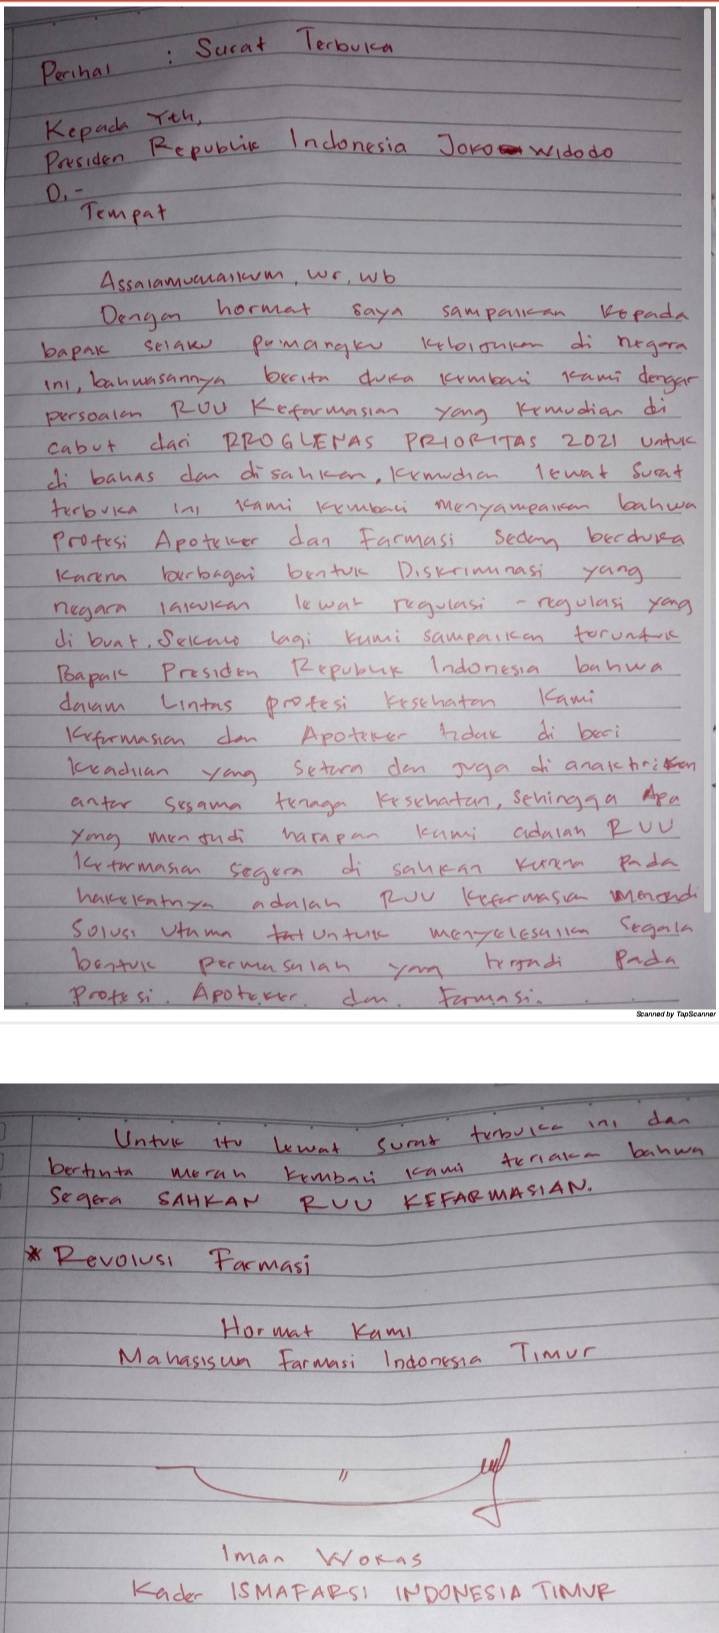 Perihal : Surat Terbuka
Kepada Yth,
Presiden Republik Indonesia Joko Widodo
D,-
Tempat
Assalamualaikum, wr, wb
Dengan hormat saya sampaikan kepada
bapak selaku pemangku kebijakan di negara
ini, bahwasannya berita duka kembali kami dengar
persoalan RUU Kefarmasian yang kemudian di
cabut dari PROGLENAS PRIORITAS 2021 untuk
di bahas dan di sahkan, kemudian lewat surat
terbuka ini kami kembali menyampaikan bahwa
Profesi Apoteker dan Farmasi sedang berduka
karena berbagai bentuk Diskriminasi yang
negara lakukan lewat regulasi - regulasi yang
di buat. Sekali lagi kami sampaikan teruntuk
Bapak Presiden Republik Indonesia bahwa
dalam Lintas profesi kesehatan Kami
Kefarmasian dan Apoteker tidak di beri
keadilan yang setara dan juga di
antar sesama tenaga kesehatan, sehingga apa
yang menjadi harapan kami adalah RUU
Kefarmasian segera di sahkan karena pada
hakekatnya adalah RUU Kefarmasian menjadi
Solusi Utama untuk menyelesaikan segala
bentuk permasalah yang terjadi pada
Profesi Apoteker dan Farmasi.
Scanned by TapScanner
Untuk itu lewat surat terbuka ini dan
bertinta merah kembali kami teriakan bahwa
Segera SAHKAN RUU KEFARMASIAN.
* Revolusi Farmasi
Hormat Kami
Mahasiswa Farmasi Indonesia Timur
Iman Wokas
Kader ISMAFARSI INDONESIA TIMUR